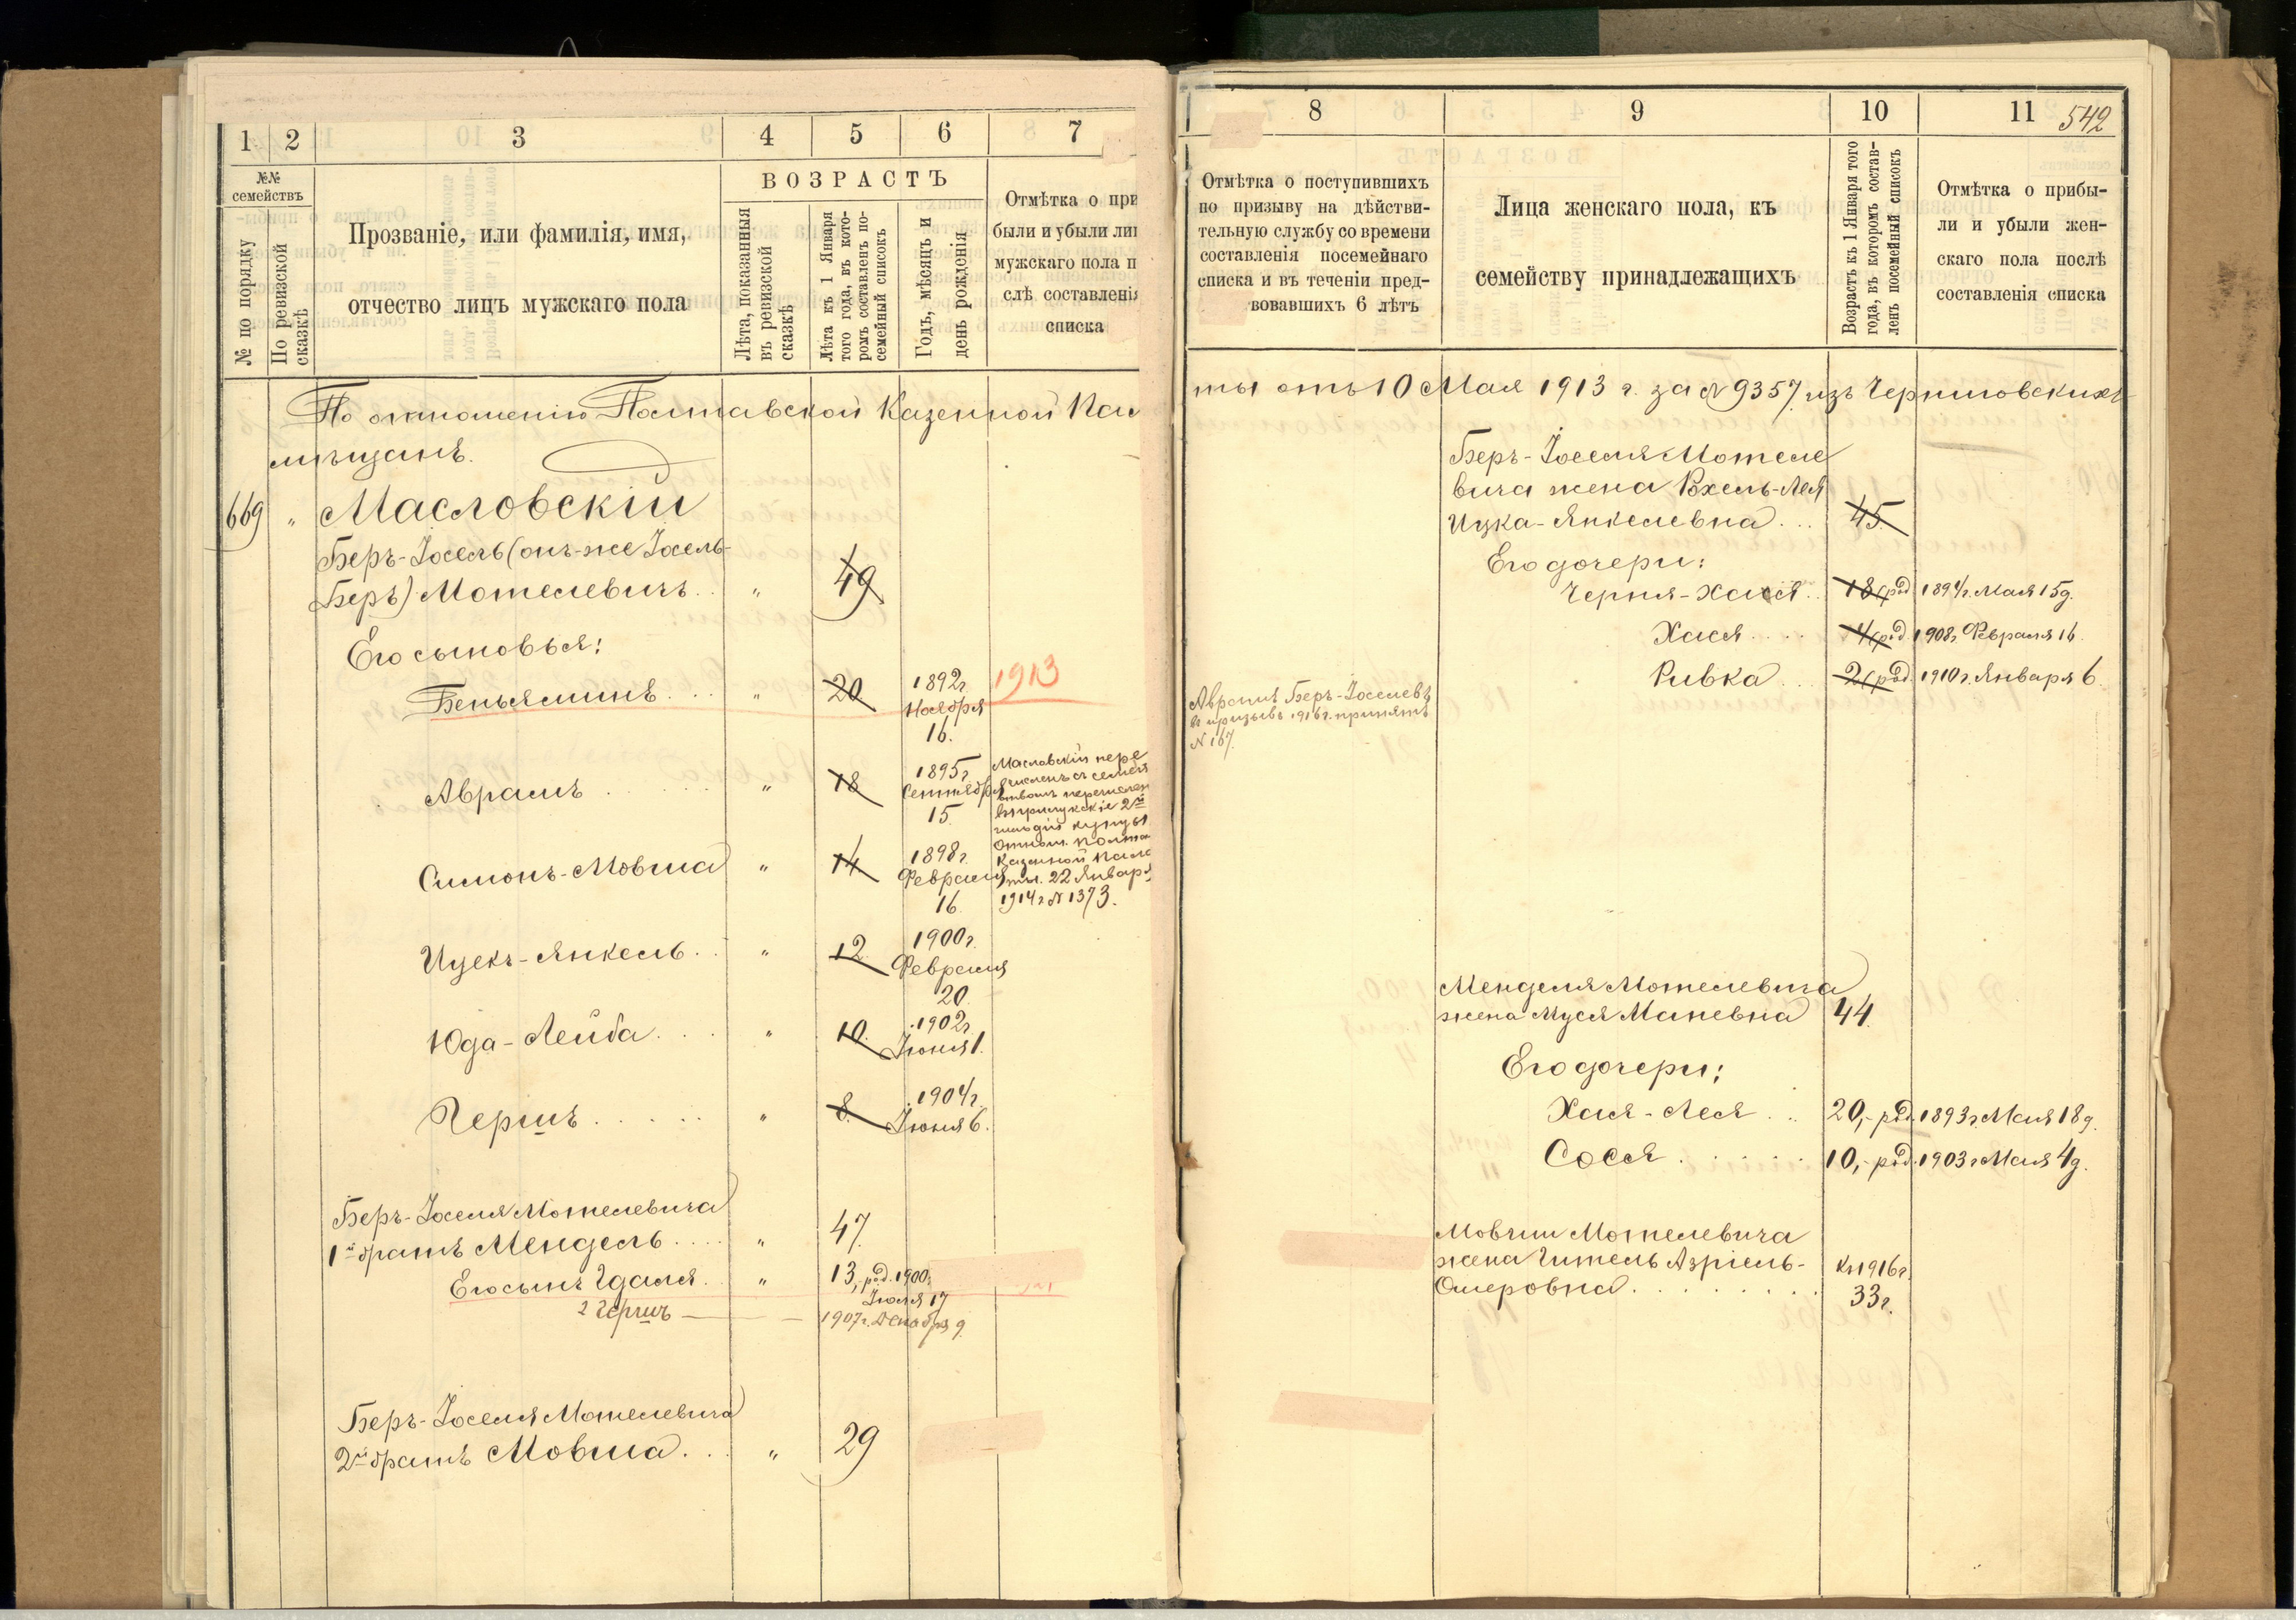 1
2
3
4
5
6
7
№№
семействъ
№ по порядку
По ревизской
сказкѣ
Прозваніе, или фамилія, имя,
отчество лицъ мужскаго пола
ВОЗРАСТЪ
Лѣта, показанныя
въ ревизской
сказкѣ
Лѣта къ 1 Января
того года, въ кото-
ромъ составленъ по-
семейный списокъ
Годъ, мѣсяцъ и
день рожденія
Отмѣтка о при
были и убыли лиц
мужскаго пола п
слѣ составленія
списка
По отношенію Полтавской Казенной Пала
мѣщанъ.
669 " Масловскій
Беръ-Іосель (онъ-же Іосель-
Беръ) Мотелевичъ . . " 49
Его сыновья:
Беньяминъ . . . " 20 1892г. 1913
Ноября
16.
Аврамъ . . . . . " 18 1895г.
Сентября
15.
Симонъ-Мовша " 14 1898г.
Февраля
16.
Масловскій пере
численъ съ семей
ствомъ перечислен
въ прилукскіе 2й
гильдіи купцы
отнош. Полта
Казенной Пала
ты. 22 Января
1914 г № 1373.
Ицекъ-Янкель . . " 12. 1900г.
Февраля
20.
Юда-Лейба . . . " 10. 1902г.
Іюня 1.
Гершъ . . . . . " 8. 1904г.
Іюня 6.
Беръ-Іоселя Мотелевича
1й братъ Мендель . . . . " 47.
Его сынъ Гдаля . . " 13,-род. 1900г.
Іюля 17
2 Гершъ — — 1907г. Декабря 9
Беръ-Іоселя Мотелевича
2й братъ Мовша . . . " 29
8
9
10
11
542
Отмѣтка о поступившихъ
по призыву на дѣйстви-
тельную службу со времени
составленія посемейнаго
списка и въ теченіи пред-
вовавшихъ 6 лѣтъ
Лица женскаго пола, къ
семейству принадлежащихъ
Возрастъ къ 1 Января того
года, въ которомъ состав-
ленъ посемейный списокъ
Отмѣтка о прибы-
ли и убыли жен-
скаго пола послѣ
составленія списка
ты отъ 10 Мая 1913 г. за № 9357 изъ Черниговскихъ
Беръ-Іоселя Мотеле
вича жена Рохель-Лея
Ицка-Янкелевна . . . 45.
Его дочери:
Черня-Хася . . 18 род. 1894г. Мая 15д.
Хася . . . . 4 род. 1908г. Февраля 16.
Ривка . . . 2 род. 1910г. Января 6.
Аврамъ Беръ-Іоселевъ
въ призывъ 1916 г. принятъ
№ 167.
Менделя Мотелевича
жена Муся Маневна 44.
Его дочери:
Хая-Леся . . 20,-род. 1893г. Мая 18д.
Сося . . . . . . 10,-род. 1903г Мая 4д.
Мовши Мотелевича
жена Гитель Азріель-
Омеровна . . . . . . . .
Къ 1916г.
33г.